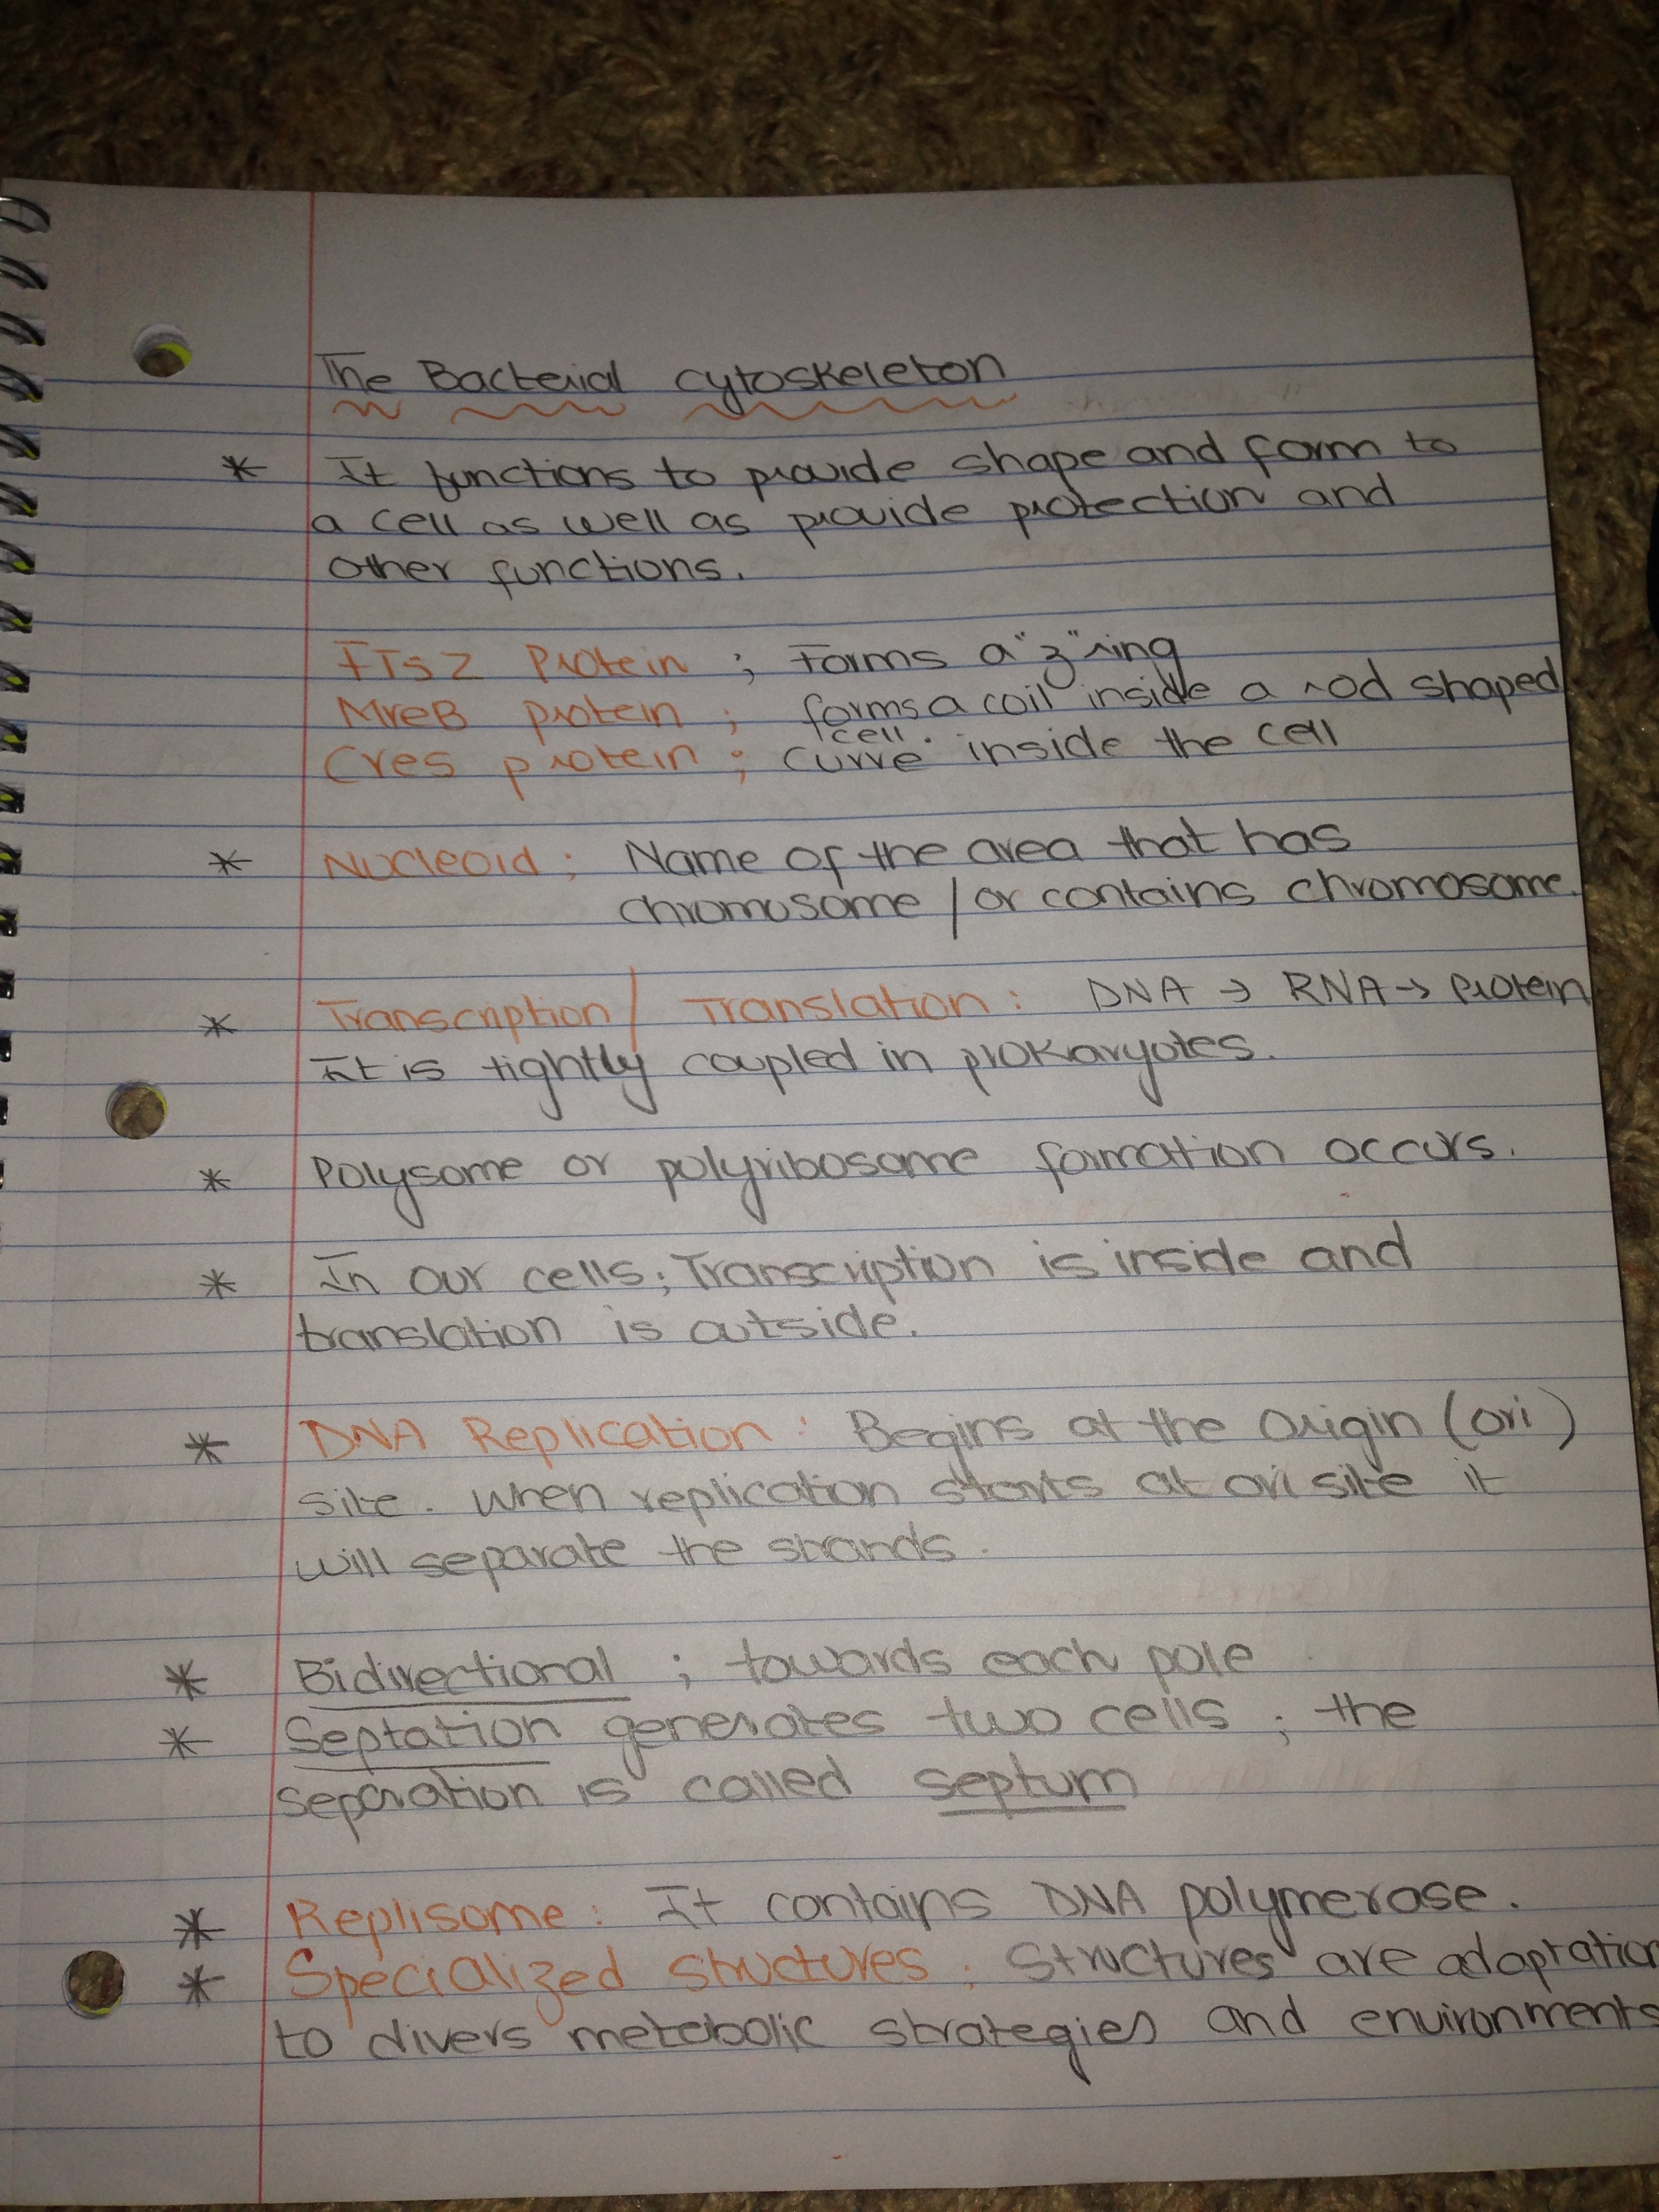 The Bacterial cytoskeleton
* It functions to provide shape and form to
a cell as well as provide protection and
other functions.
FTsZ Protein ; Forms a "z" ring
MreB protein ; forms a coil inside a rod shaped
cell.
Cres protein ; curve inside the cell
* Nucleoid ; Name of the area that has
chromosome / or contains chromosome.
* Transcription / Translation : DNA → RNA → Protein
It is tightly coupled in prokaryotes.
* Polysome or polyribosome formation occurs.
* In our cells; Transcription is inside and
translation is outside.
* DNA Replication : Begins at the Origin (ori)
site. When replication starts at ori site it
will separate the strands.
* Bidirectional ; towards each pole
* Septation generates two cells ; the
separation is called septum
* Replisome : It contains DNA polymerase.
* Specialized structures : Structures are adaptation
to divers metabolic strategies and environments